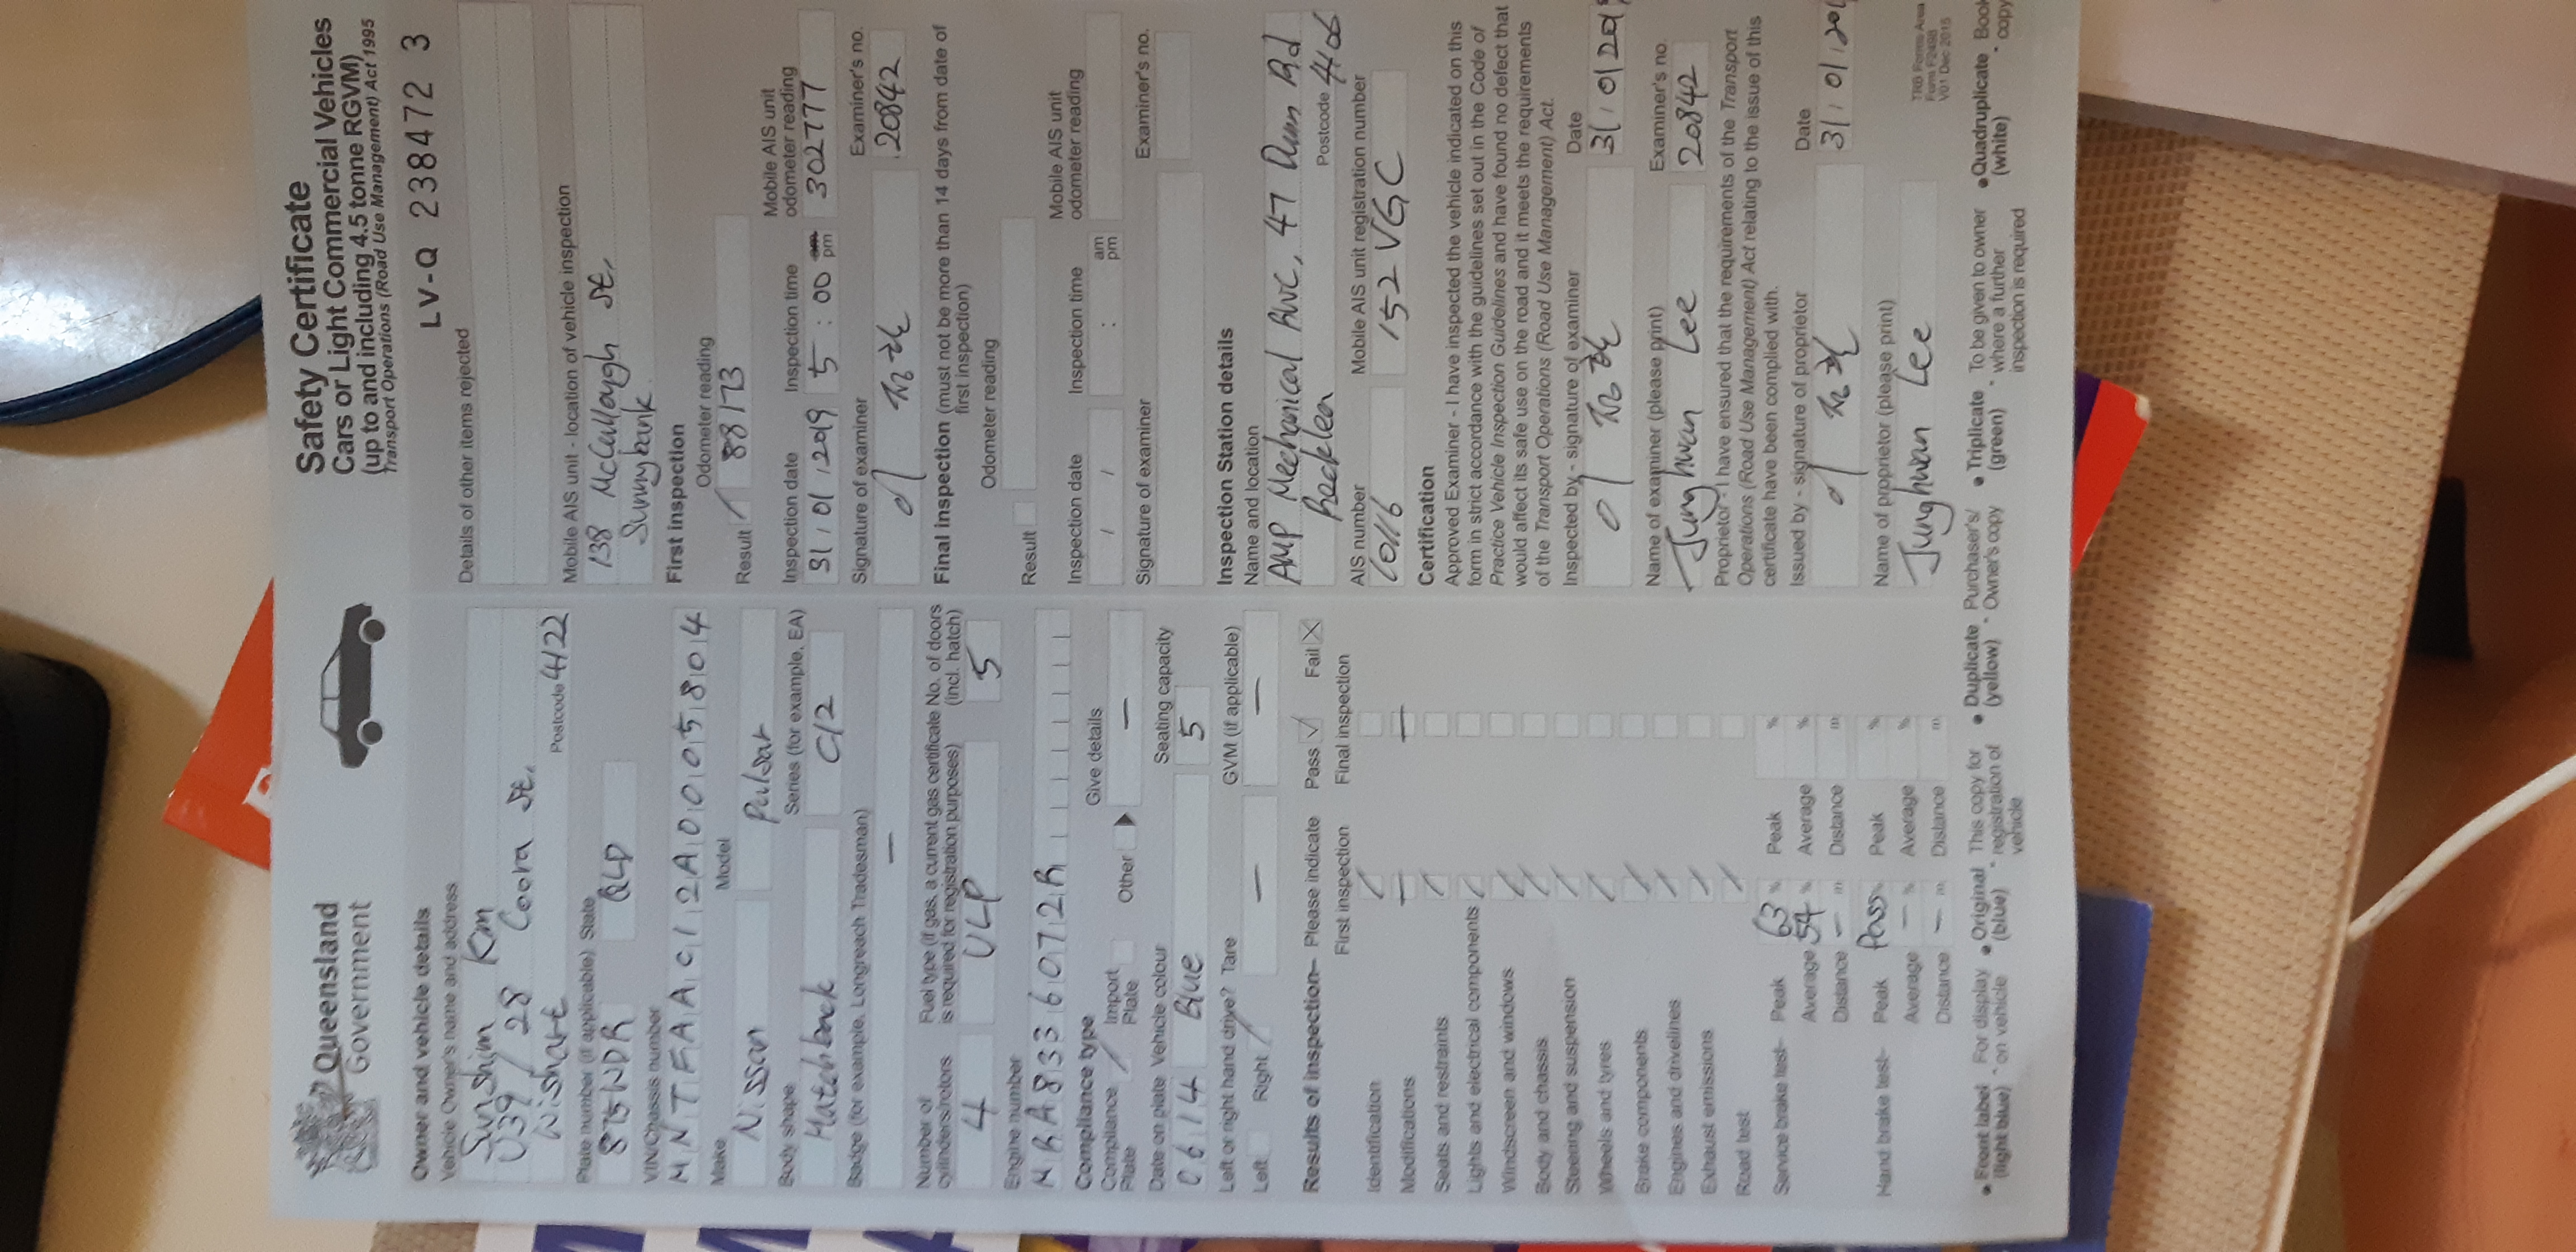 Queensland
Government
Safety Certificate
Cars or Light Commercial Vehicles
(up to and including 4.5 tonne RGVM)
Transport Operations (Road Use Management) Act 1995
LV-Q 238472 3
Owner and vehicle details
Vehicle Owner's name and address
Sunshim Km
U39 / 28 Coora St,
Wishart
Postcode 4122
Plate number (if applicable) State
875WDR QLD
VIN/Chassis number
MNTFAAC12A0005804
Make Model
Nissan Pulsar
Body shape Series (for example, EA)
Hatchback C12
Badge (for example, Longreach Tradesman)
—
Number of cylinders/rotors
4
Fuel type (if gas, a current gas certificate is required for registration purposes)
ULP
No. of doors (incl. hatch)
5
Engine number
MRA8336072R
Compliance type
Compliance Plate / Import Plate Other Give details
—
Date on plate Vehicle colour Seating capacity
0614 Blue 5
Left or right hand drive? Tare GVM (if applicable)
Left Right / — —
Results of inspection– Please indicate Pass ✓ Fail X
First inspection Final inspection
Identification
Modifications — —
Seats and restraints
Lights and electrical components
Windscreen and windows
Body and chassis
Steering and suspension
Wheels and tyres
Brake components
Engines and drivelines
Exhaust emissions
Road test
Service brake test– Peak 63 % Peak %
Average 54 % Average %
Distance — m Distance m
Hand brake test– Peak Pass % Peak %
Average — % Average %
Distance — m Distance m
Details of other items rejected
Mobile AIS unit - location of vehicle inspection
138 McCullough St,
Sunnybank
First inspection
Odometer reading
Result / 88173
Inspection date Inspection time Mobile AIS unit odometer reading
31/01/2019 5:00 pm 302777
Signature of examiner Examiner's no.
20842
Final inspection (must not be more than 14 days from date of
first inspection)
Odometer reading
Result
Inspection date Inspection time Mobile AIS unit odometer reading
/ / : am pm
Signature of examiner Examiner's no.
Inspection Station details
Name and location
AMP Mechanical 47
Postcode
AIS number Mobile AIS unit registration number
152 VGC
Certification
Approved Examiner - I have inspected the vehicle indicated on this
form in strict accordance with the guidelines set out in the Code of
Practice Vehicle Inspection Guidelines and have found no defect that
would affect its safe use on the road and it meets the requirements
of the Transport Operations (Road Use Management) Act.
Inspected by - signature of examiner Date
31/01/2019
Name of examiner (please print) Examiner's no.
Junghwan Lee 20842
Proprietor - I have ensured that the requirements of the Transport
Operations (Road Use Management) Act relating to the issue of this
certificate have been complied with.
Issued by - signature of proprietor Date
31/01/201
Name of proprietor (please print)
Junghwan Lee
TRB Forms Area
Form F2498
V01 Dec 2015
• Front label (light blue) - For display on vehicle
• Original (blue) - This copy for registration of vehicle
• Duplicate (yellow) - Purchaser's/ Owner's copy
• Triplicate (green) - To be given to owner where a further inspection is required
• Quadruplicate (white) - Book copy